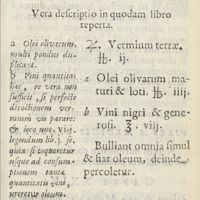 Vera descriptio in quodam libro
reperta.
a Olei olivarum,
multi pondus du-
plicant.
b Vini quantitas
hec, ro vera non
sufficit, si perfecto
decoctionem ver-
mium vis parare:
& loco num. viij.
legendum lib. j. se-
quia si coqueretur
usque ad consum-
ptionem tanta
quantitatis vini,
ureretur oleum.
♃. Vermium terræ.
℔. ij.
a Olei olivarum ma-
turi & loti. ℔. iiij.
b Vini nigri & gene-
rosi. ℥. viij.
Bulliant omnia simul
& fiat oleum, deinde
percoletur.